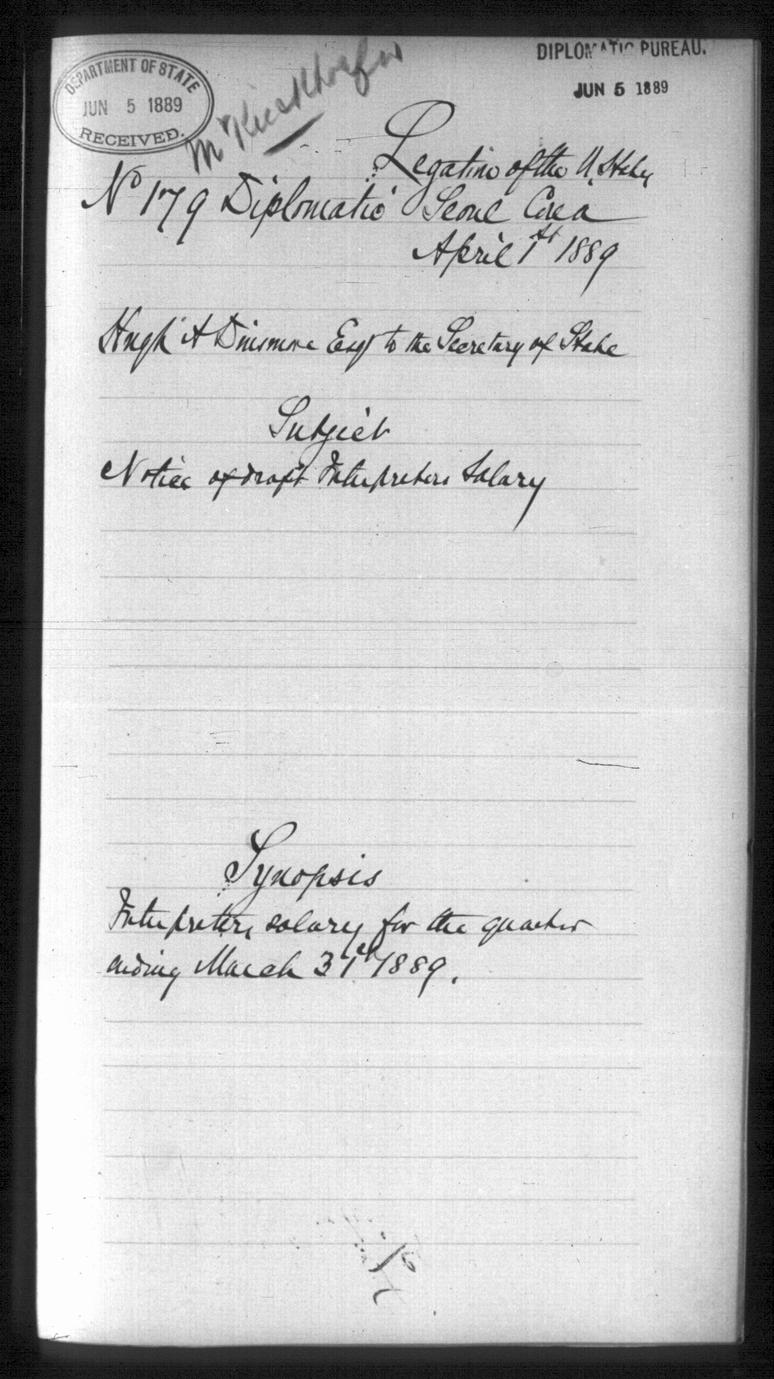 DEPARTMENT OF STATE
JUN 5 1889
RECEIVED.
DIPLOMATIC BUREAU.
JUN 5 1889
Mr Kieckhoefer
Legation of the U. States
No 179 Diplomatic Seoul Corea
April 1st 1889
Hugh A Dinsmore Esqr to the Secretary of State
Subject
Notice of draft Interpreters Salary
Synopsis
Interpreters salary for the quarter
ending March 31st 1889.